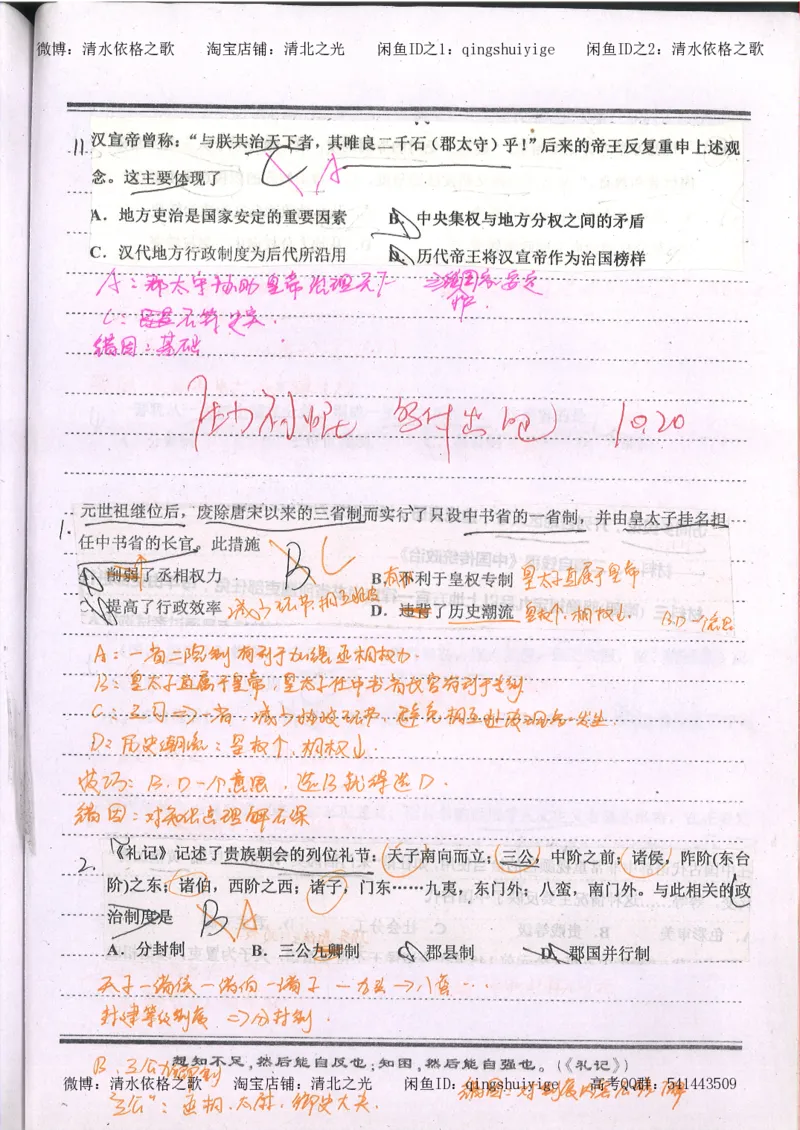 微博：清水依格之歌 淘宝店铺：清北之光 闲鱼ID之1：qingshuiyige 闲鱼ID之2：清水依格之歌
11.
汉宣帝曾称：“与朕共治天下者，其唯良二千石（郡太守）乎！”后来的帝王反复重申上述观
念。这主要体现了 C A
A．地方吏治是国家安定的重要因素 B．中央集权与地方分权之间的矛盾
C．汉代地方行政制度为后代所沿用 D．历代帝王将汉宣帝作为治国榜样
A：郡太守协助皇帝治理天下
错因：基础
10.20
1.
元世祖继位后，废除唐宋以来的三省制而实行了只设中书省的一省制，并由皇太子挂名担
任中书省的长官。此措施 B C
A．削弱了丞相权力 B．不利于皇权专制 皇太子直属于皇帝
C．提高了行政效率 减少环节 D．违背了历史潮流 皇权个，相权
A：一省二院制有利于加强丞相权力．
B：皇太子直属于皇帝，皇太子任中书省长官有利于专制
D：历史潮流：皇权个，相权
技巧：B．D一个意思，选B就得选D．
错因：
2.
《礼记》记述了贵族朝会的列位礼节：天子南向而立；三公，中阶之前；诸侯，阼阶(东台
阶)之东；诸伯，西阶之西；诸子，门东……九夷，东门外；八蛮，南门外。与此相关的政
治制度是 B A
A．分封制 B．三公九卿制 C．郡县制 D．郡国并行制
天子一诸侯一诸伯一诸子
封建等级制度 ⇒分封制．
想知不足，然后能自反也；知困，然后能自强也。（《礼记》）
微博：清水依格之歌 淘宝店铺：清北之光 闲鱼ID：qingshuiyige 高考QQ群：541443509
“三公”：丞相．太尉．御史大夫．